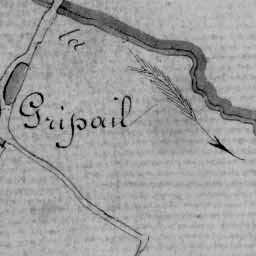 la
Gripail